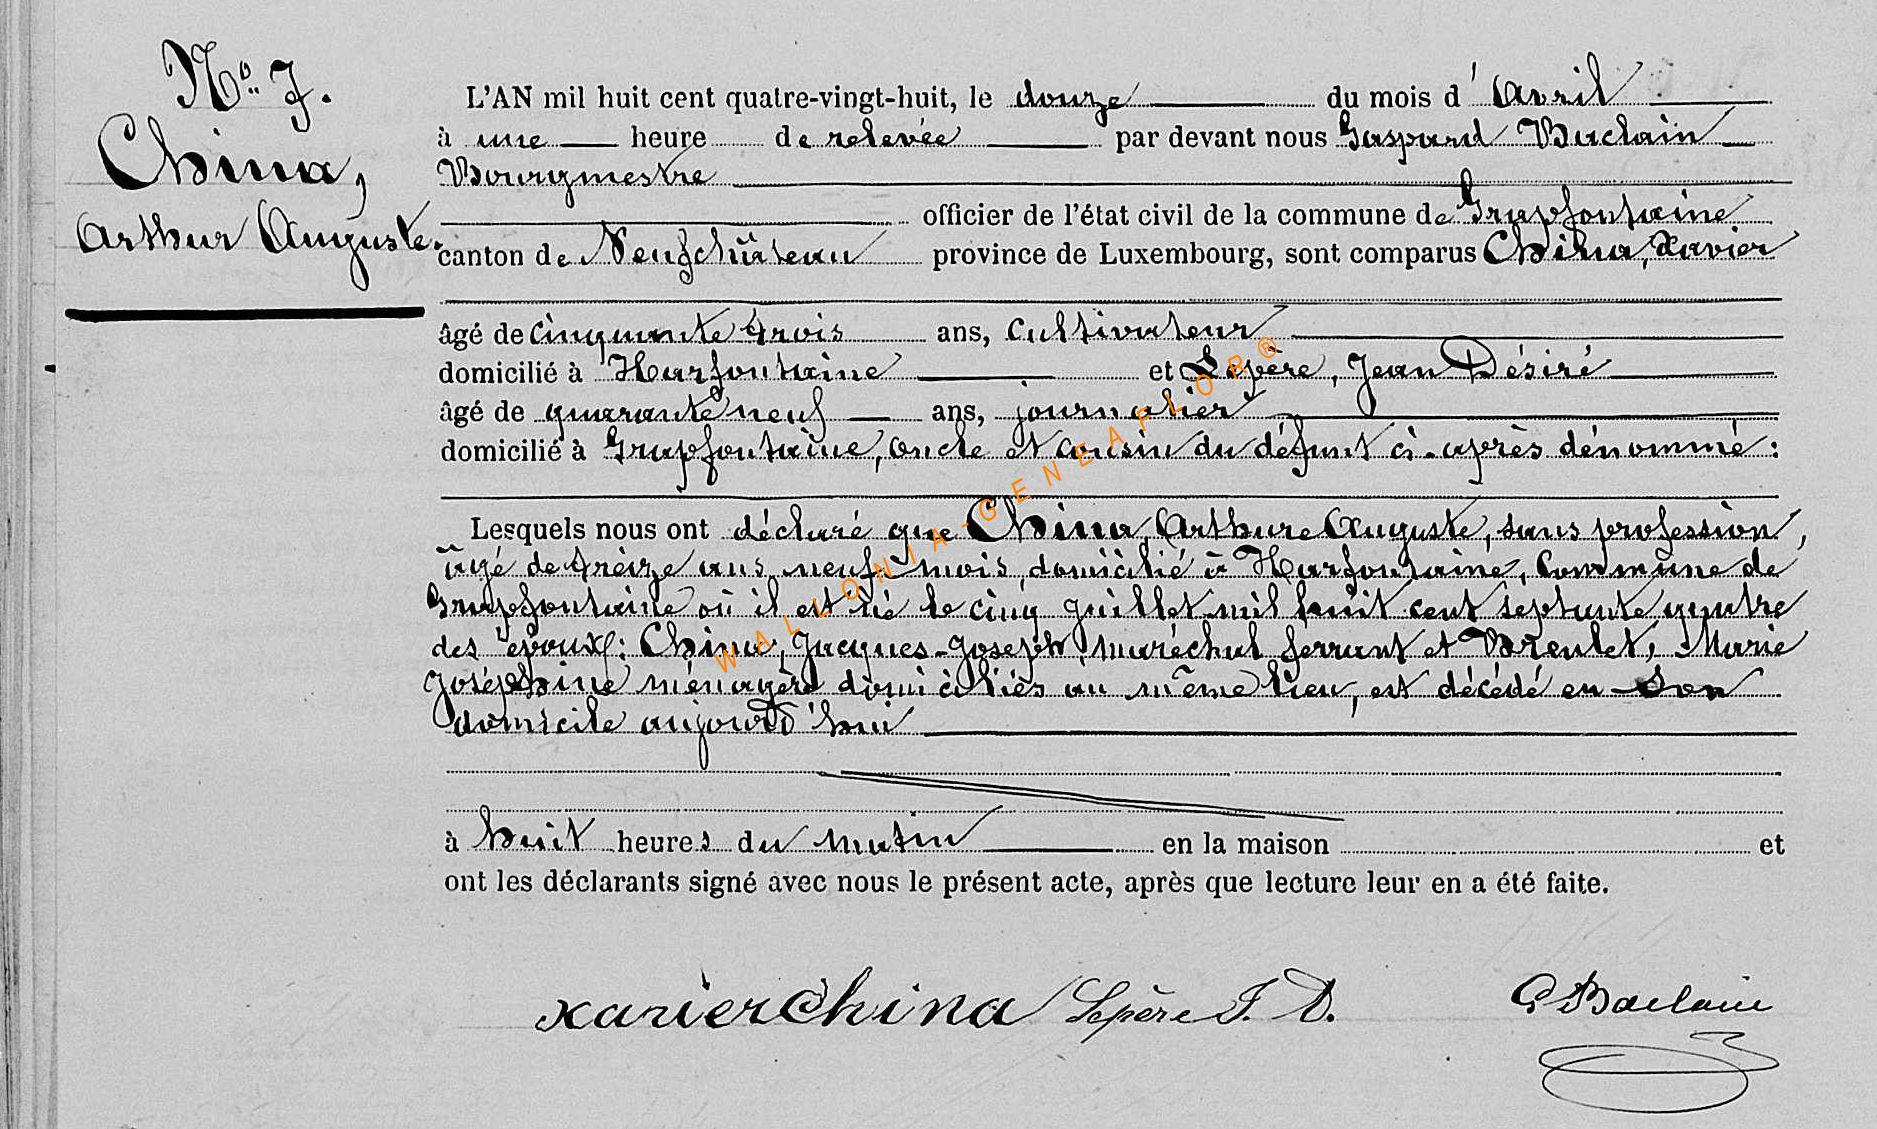 No. 7.
China,
Arthur Auguste.
L'AN mil huit cent quatre-vingt-huit, le douze du mois d'Avril
à une heure de relevée par devant nous Gaspard Baclain
Bourgmestre
officier de l'état civil de la commune de Grapfontaine
canton de Neufchâteau province de Luxembourg, sont comparus China, Xavier
âgé de cinquante trois ans, cultivateur
domicilié à Harfontaine et Lepère, Jean Désiré
âgé de quarante neuf ans, journalier
domicilié à Grapfontaine, oncle et cousin du défunt ci-après dénommé :
Lesquels nous ont déclaré que China, Arthure Auguste, sans profession,
âgé de treize ans neuf mois, domicilié à Harfontaine, Commune de
Grapfontaine où il est né le cinq juillet mil huit cent septante quatre
des époux : China, Jacques-Joseph, maréchal ferrant et Breulet, Marie
Joséphine ménagère domiciliés au même lieu, est décédé en son
domicile aujourd'hui
à huit heures du matin en la maison et
ont les déclarants signé avec nous le présent acte, après que lecture leur en a été faite.
xavier China Lepère J. D. G Baclain
WALLONIA-GENEAFLOR®